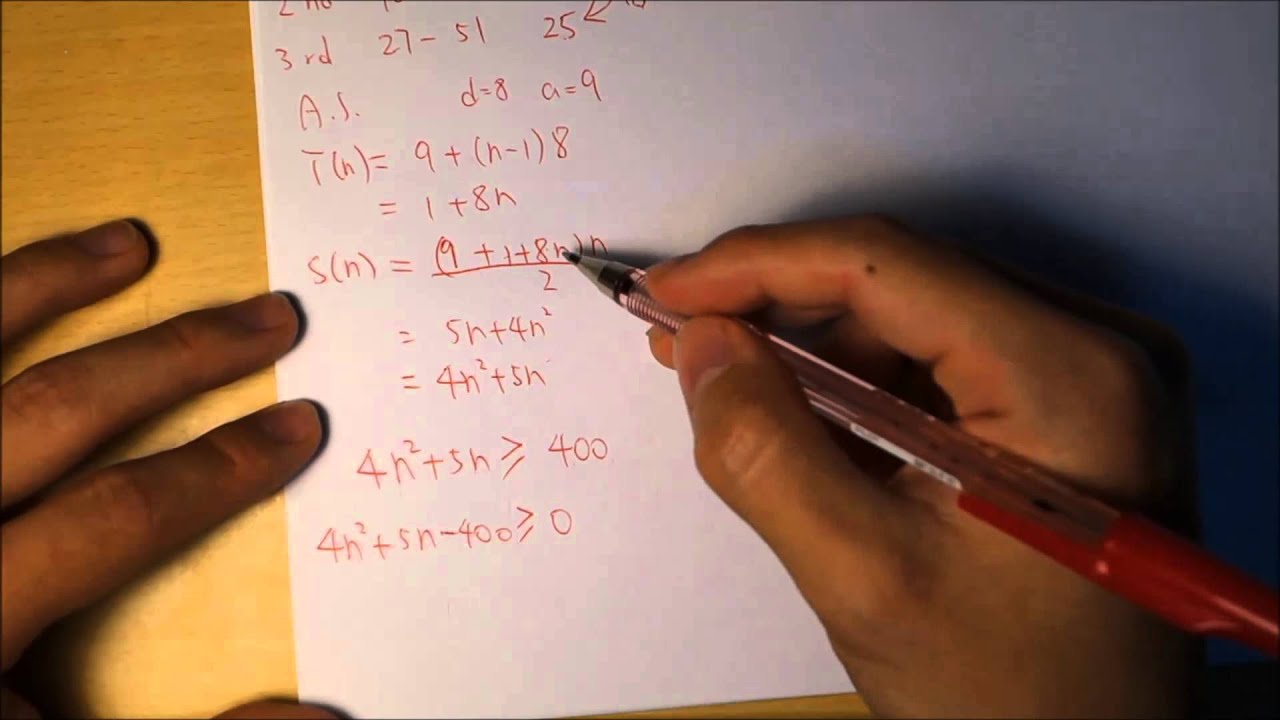 3rd 27-51 25
A.S. d=8 a=9
T(n)= 9+(n-1)8
= 1+8n
S(n) = (9+1+8n)n
2
= 5n+4n²
= 4n²+5n
4n²+5n ⩾ 400
4n²+5n-400⩾0